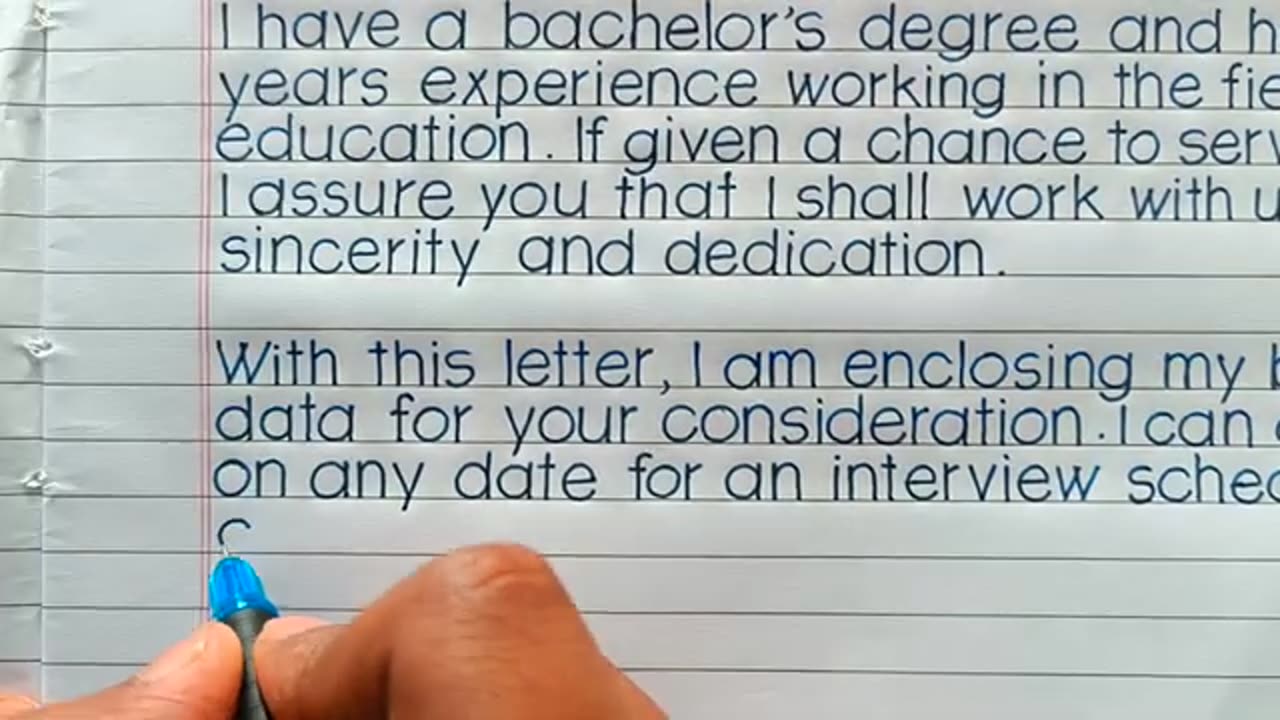 I have a bachelor's degree and
years experience working in the
education. If given a chance to
I assure you that I shall work with
sincerity and dedication.
With this letter, I am enclosing my
data for your consideration. I can
on any date for an interview